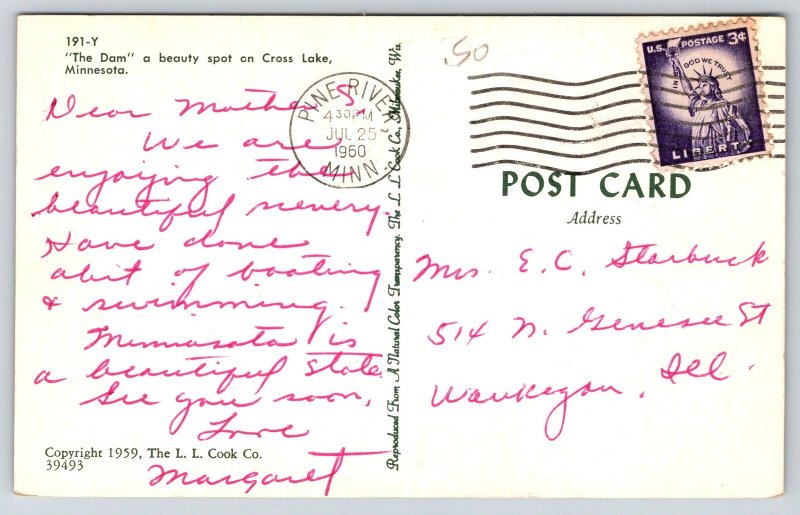 191-Y
"The Dam" a beauty spot on Cross Lake,
Minnesota.
Dear Mother
We are
enjoying the
beautiful scenery.
Have done
abit of boating
& swimming.
Minnasota is
a beautiful state
See you soon,
Love
Margaret
Copyright 1959, The L. L. Cook Co.
39493
Reproduced From A Natural Color Transparency. The L. L. Cook Co., Milwaukee, Wis.
PINE RIVER,
430PM
JUL 25
1960
MINN.
.50
U.S. POSTAGE 3¢
IN GOD WE TRUST
LIBERTY
POST CARD
Address
Mrs. E. C. Starbuck
514 N. Genesee St
Waukegan, Ill.